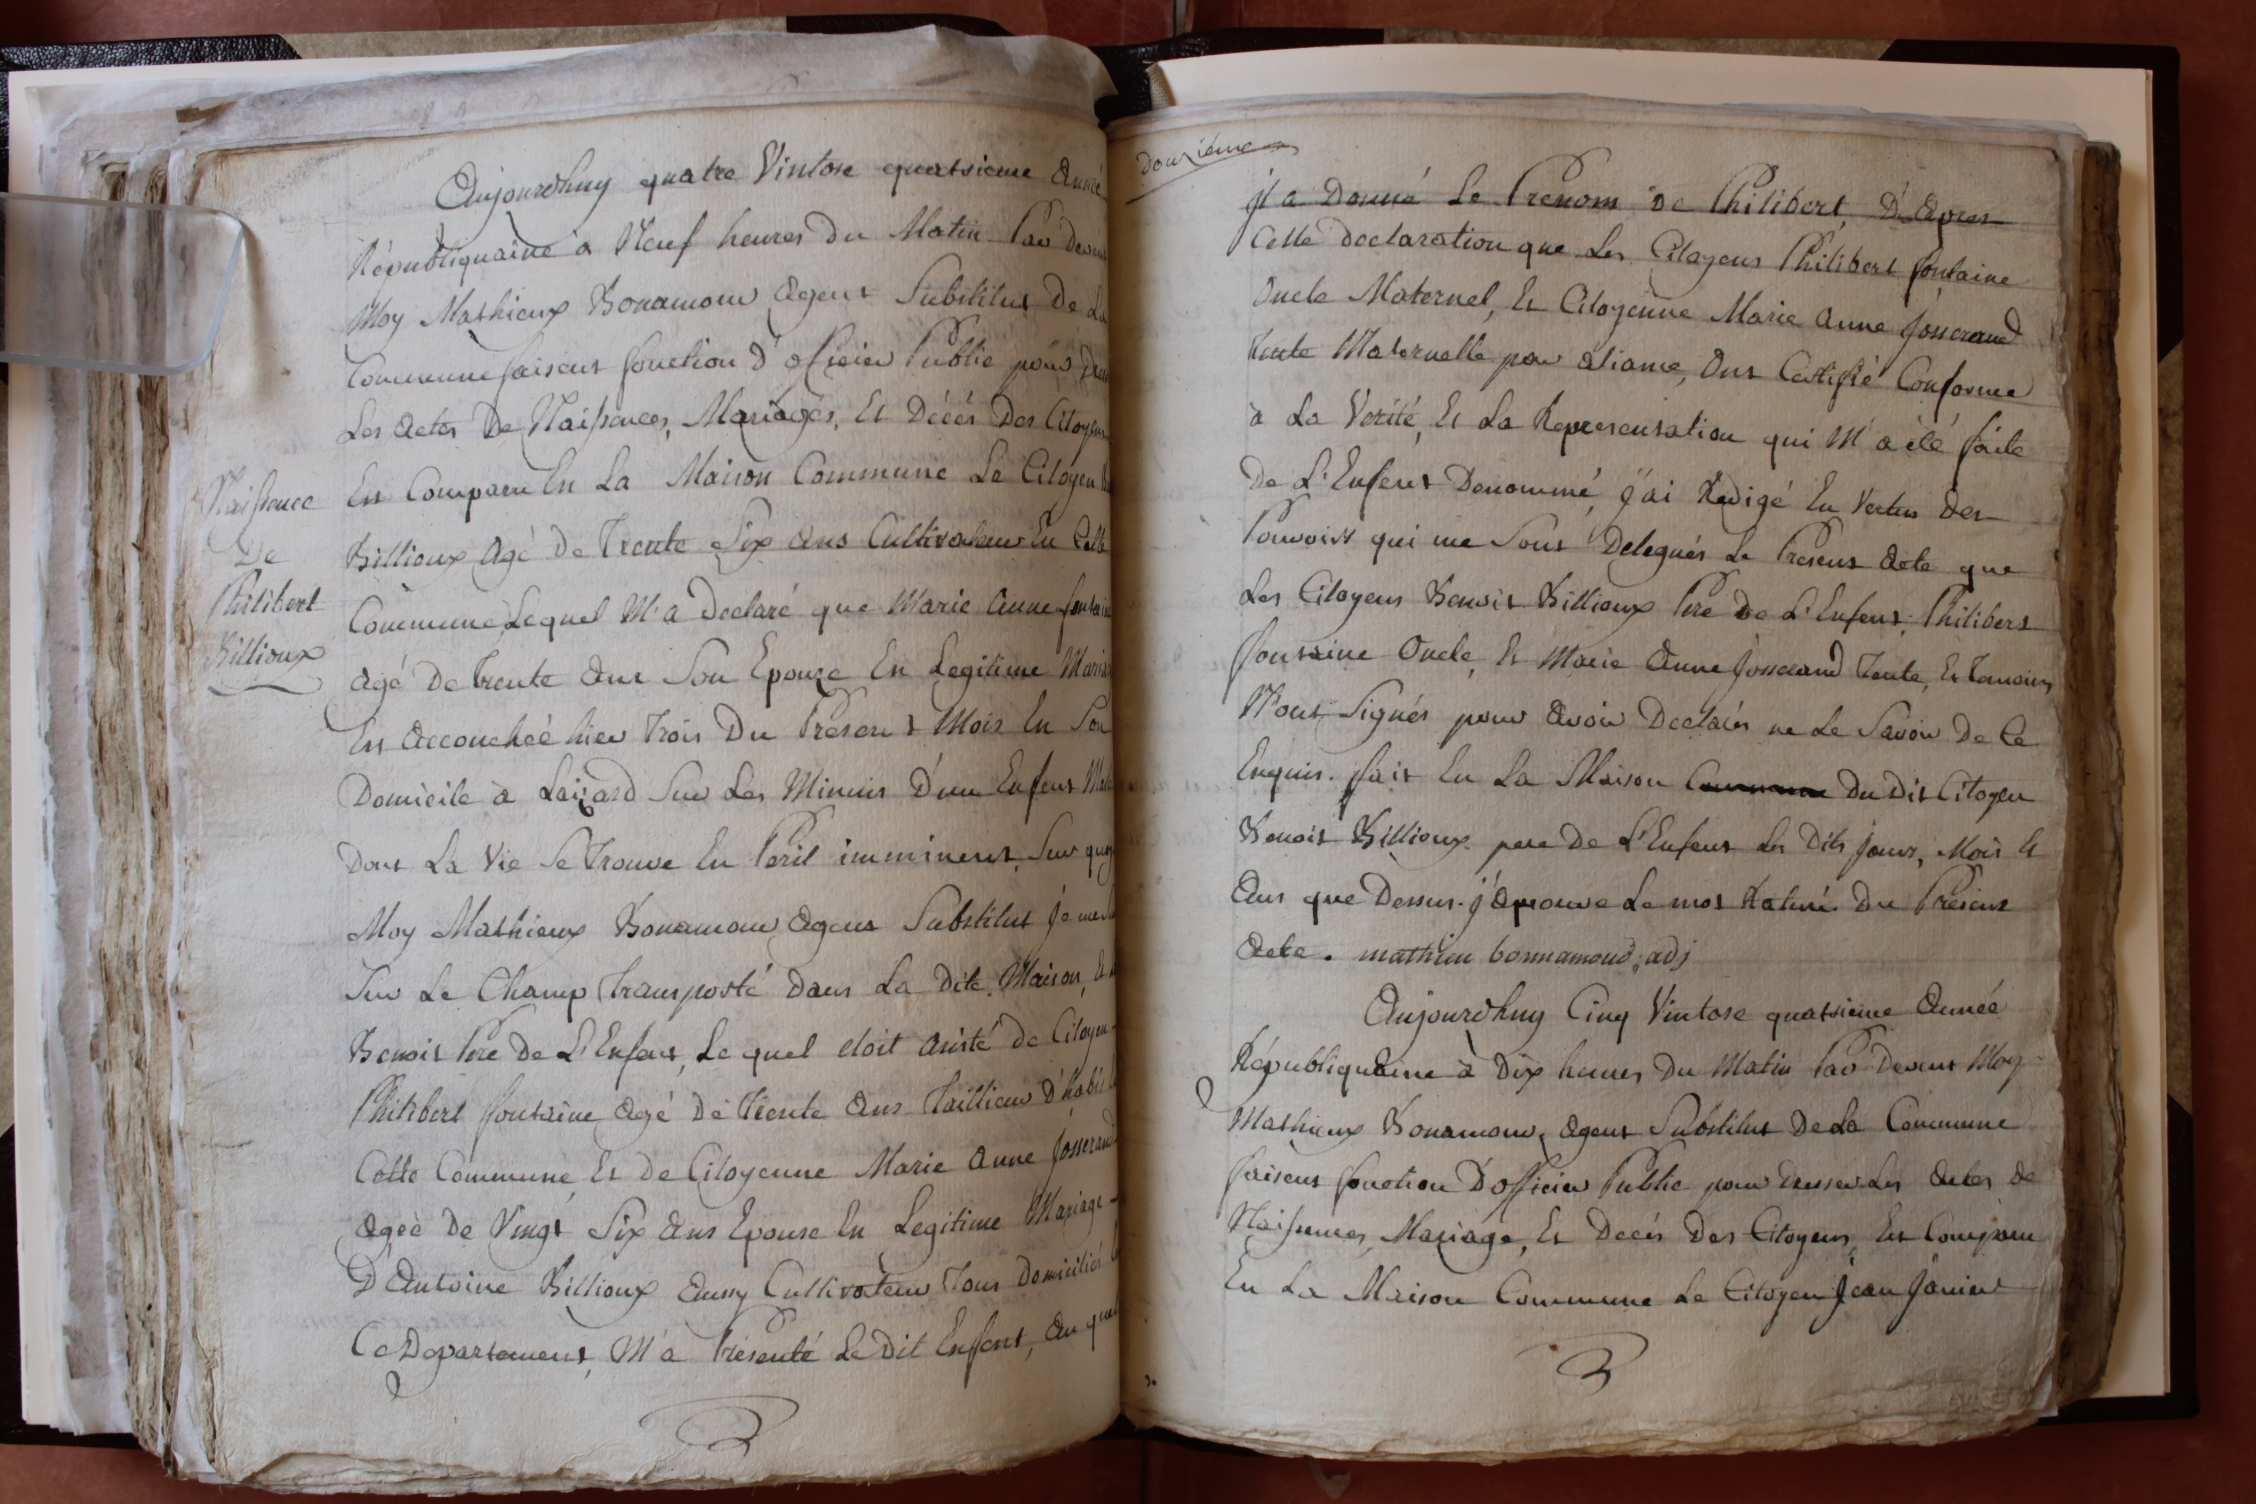 Aujourdhuy quatre Vintose quatsieme Année
Républiquaine à Neuf heures Du Matin Par Devent
Moy Mathieux Bonamour Agent Substitut De La
Commune faisent fonction D'officier Public pour
Les Actes De Naissences, Mariages, Et Décés Des Citoyens
Est Comparu En La Maison Commune Le Citoyen
Billioux Agé De Trente Six Ans Cultivateur En Cette
Commune, Lequel M'a Declaré que Marie Anne fontaine
Agé De trente Ans Son Epouze En Legitime Mariage
Est Accouchéé hier Trois Du Present Mois En Son
Domicile à Laizard Sur Les Minuis D'un Enfent Male
Dont La Vie Se Trouve En Péril imminent, Sur quoy
Moy Mathieux Bonamour Agent Substitut je me
Sur Le Champ Transporté Dans La Dite Maison,
Benoit Pere De L'Enfent, Le quel etoit Asisté de Citoyen
Philibert fontaine Agé De Trente Ans Taillieur D'habit
Cette Commune, Et de Citoyenne Marie Anne Josserand
Agéé De Vingt Six Ans Epouse En Legitime Mariage
D'Antoine Billioux Aussy Cultivateur Tous Domiciliés
Ce Departement, M'a Présenté Le Dit Enfent, Au quel
Naissence
De
Philibert
Billioux
Douzieme
jl a Donné Le Prenom De Philibert, D'Apres
Cette declaration que Les Citoyens Philibert fontaine
Oncle Maternel, Et Citoyenne Marie Anne Josserand
Tente Maternelle par aliance, Ont Certifié Conforme
à La Verité, Et La Representation qui M'a été faite
De L'Enfent Denommé, j'ai Redigé En Vertus Des
Pouvoirs qui me Sont Delegués Le Present Acte que
Les Citoyens Benoit Billioux Pere De L'Enfent, Philibert
fontaine Oncle, Et Marie Anne Josserand Tente, Et Temoins
N'ont Signés pour Avoir Declarés ne Le Savoir De Ce
Enquis. fait En La Maison Commune Du Dit Citoyen
Benoit Billioux pere De L'Enfent Les Dits jours, Mois Et
Ans que Dessus. j'aprouve Le mot Raturé Du Present
Acte. mathieu bonnamour, adj
Aujourdhuy Cinq Vintose quatsieme Année
Républiquaine à Dix heures Du Matin Par Devent Moy
Mathieux Bonamour, Agent Substitut De La Commune
faisent fonction D'officier Public pour Dresser Les Actes de
Naissences, Mariage, Et Decés Des Citoyens, Est Comparu
En La Maison Commune Le Citoyen Jean Janin